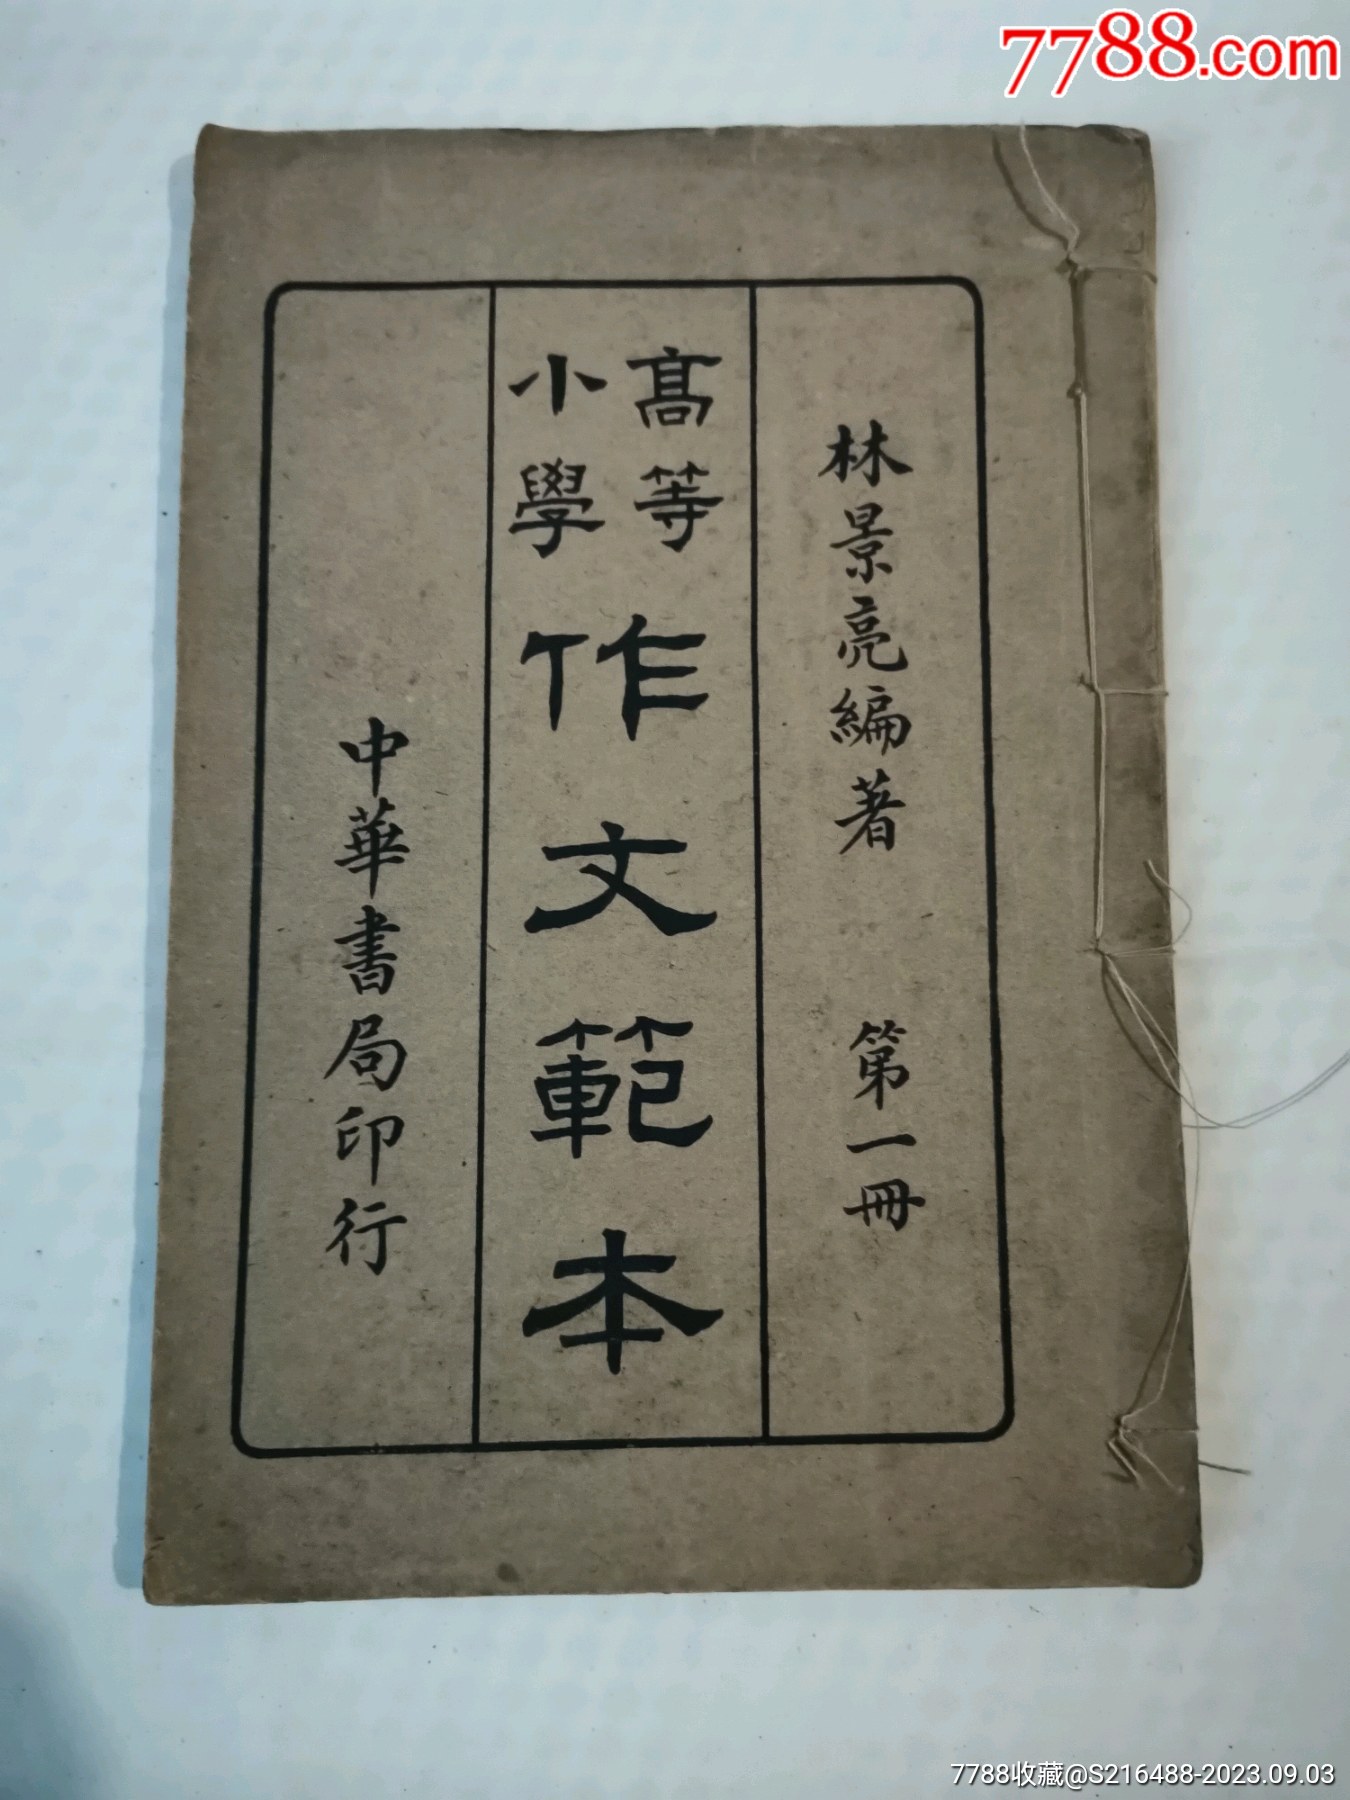 7788.com
林景亮編著 第一冊
高等
小學
作文範本
中華書局印行
7788收藏@S216488-2023.09.03